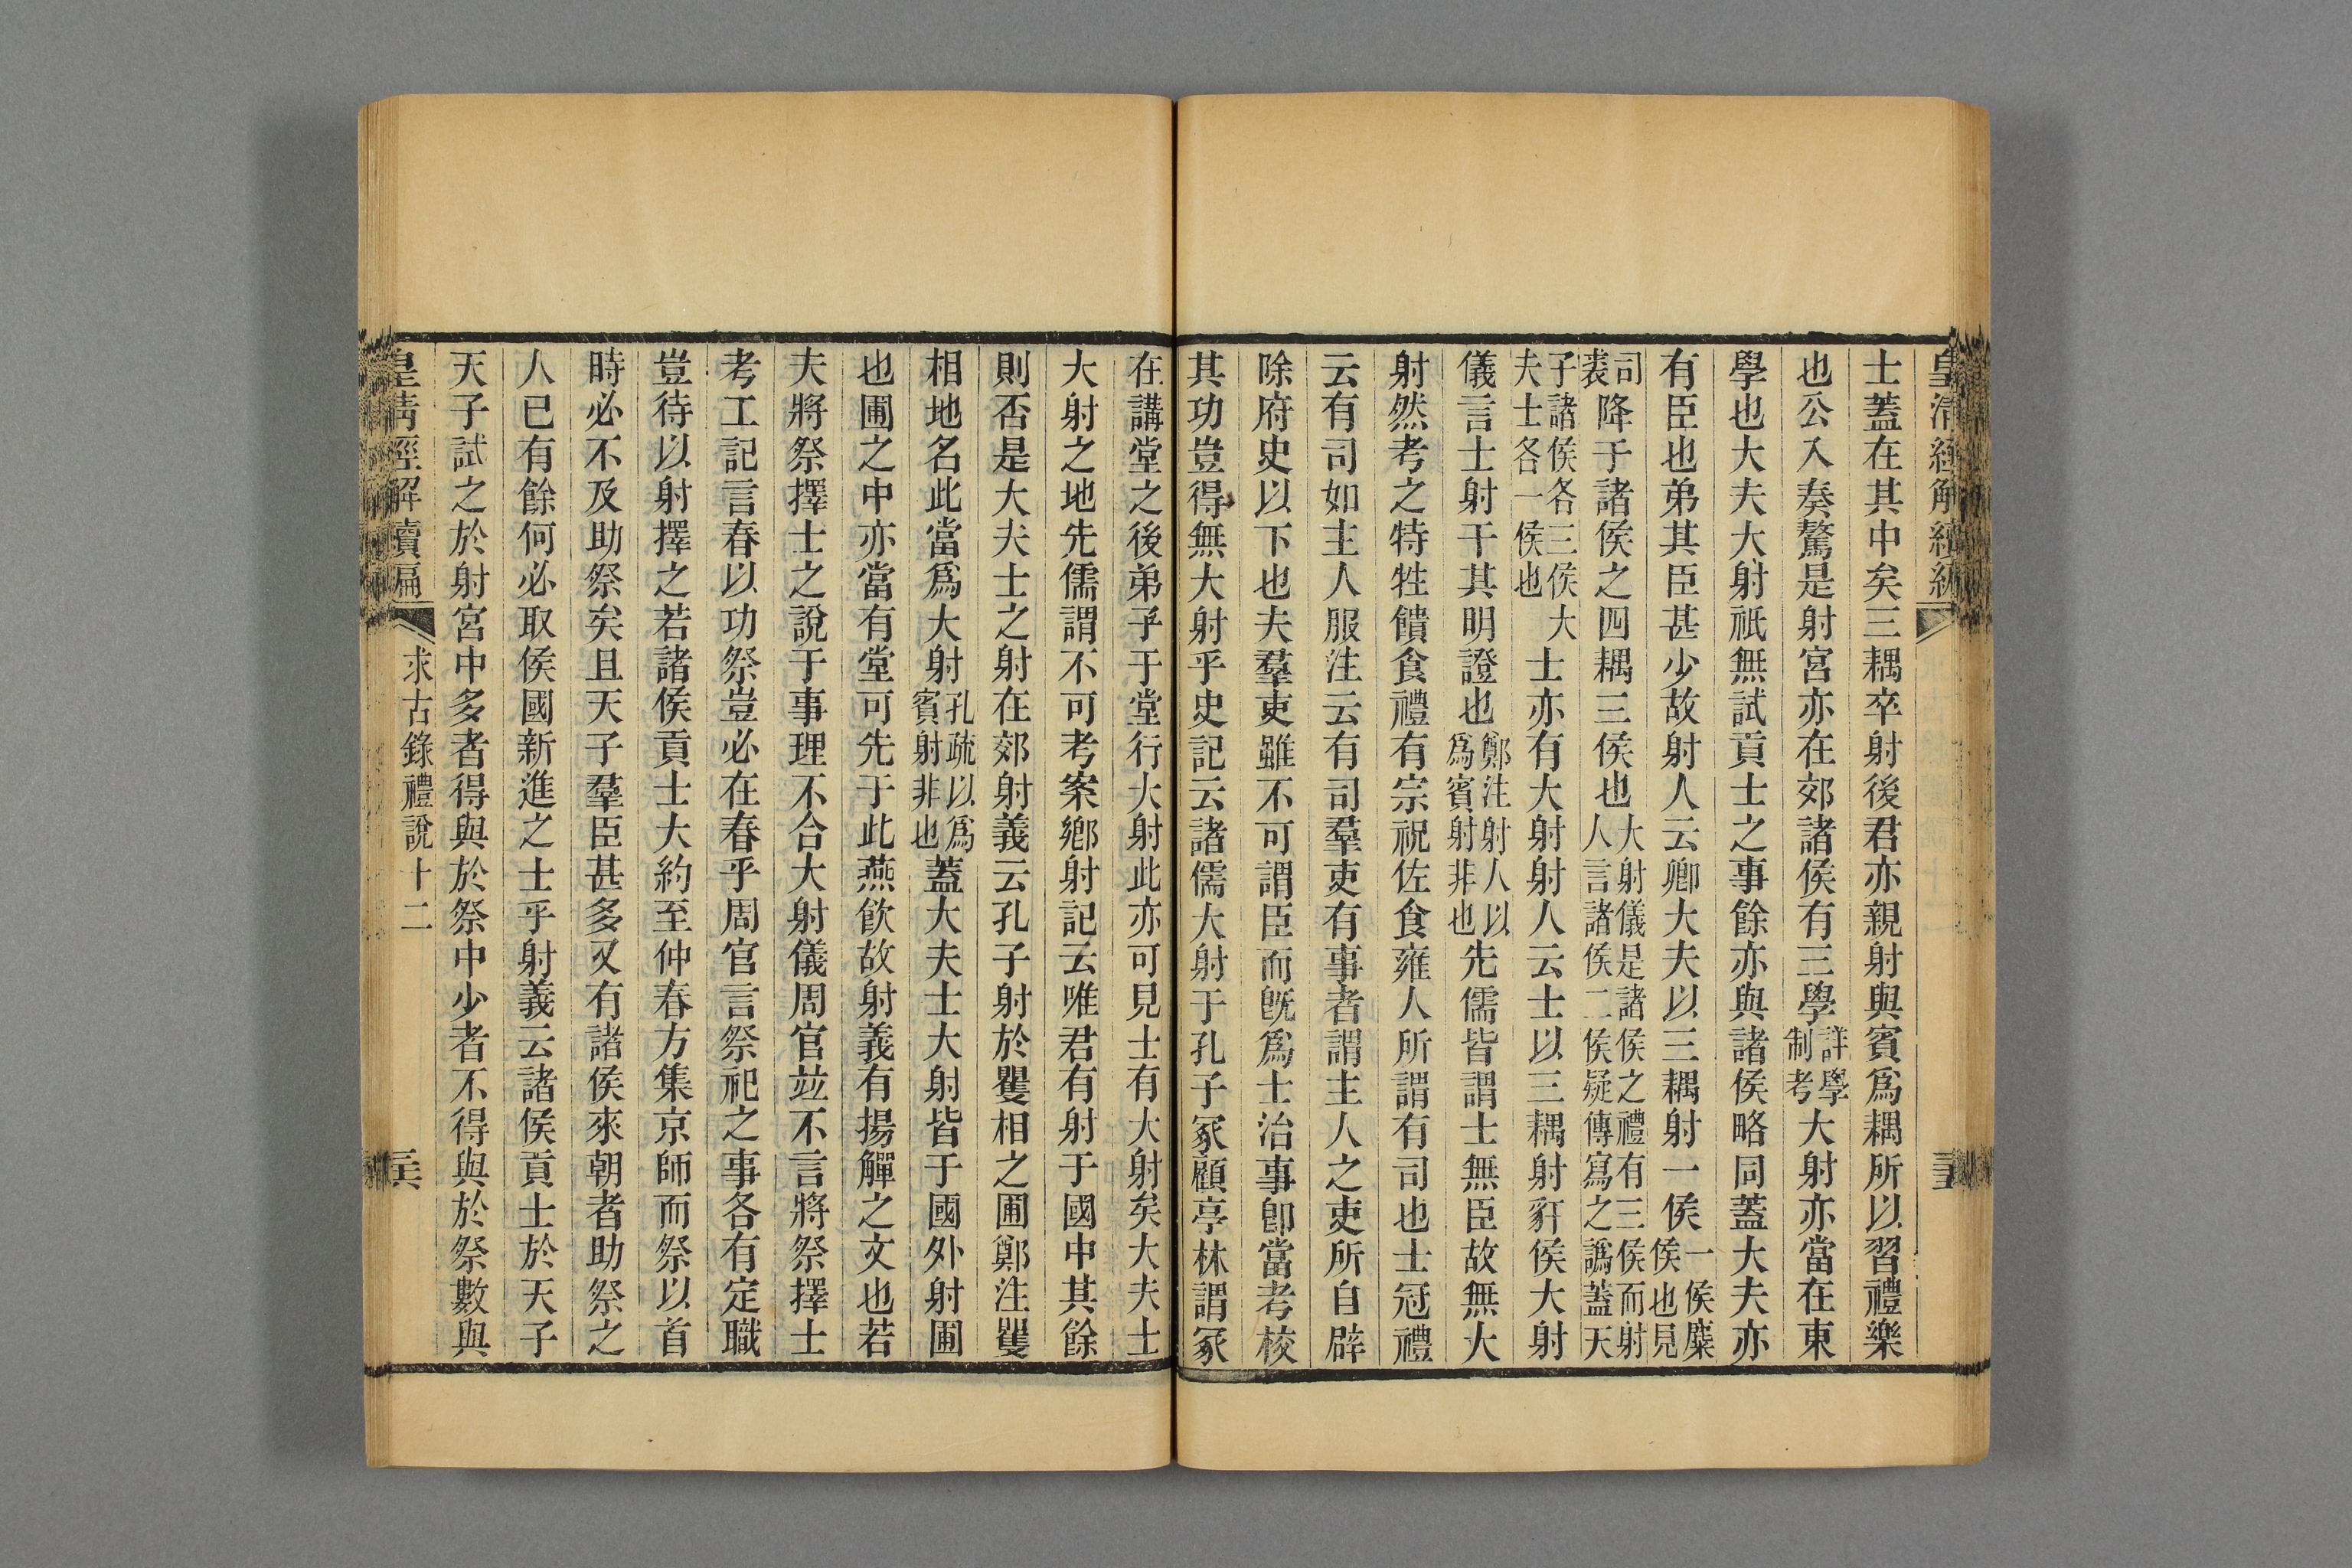 皇清經解續編
士蓋在其中矣三耦卒射後君亦親射與賓爲耦所以習禮樂
也公入奏驁是射宮亦在郊諸侯有三學詳學制考大射亦當在東
學也大夫大射祇無試貢士之事餘亦與諸侯略同蓋大夫亦
有臣也弟其臣甚少故射人云卿大夫以三耦射一侯一侯麋侯也見
司裘降于諸侯之四耦三侯也大射儀是諸侯之禮有三侯而射人言諸侯二侯疑傳寫之譌蓋天
子諸侯各三侯大夫士各一侯也士亦有大射射人云士以三耦射豻侯大射
儀言士射干其明證也鄭注射人以爲賓射非也先儒皆謂士無臣故無大
射然考之特牲饋食禮有宗祝佐食雍人所謂有司也士冠禮
云有司如主人服注云有司羣吏有事者謂主人之吏所自辟
除府史以下也夫羣吏雖不可謂臣而既爲士治事卽當考校
其功豈得無大射乎史記云諸儒大射于孔子冢顧亭林謂冢
在講堂之後弟子于堂行大射此亦可見士有大射矣大夫士
大射之地先儒謂不可考案鄉射記云唯君有射于國中其餘
則否是大夫士之射在郊射義云孔子射於矍相之圃鄭注矍
相地名此當爲大射孔疏以爲賓射非也蓋大夫士大射皆于國外射圃
也圃之中亦當有堂可先于此燕飲故射義有揚觶之文也若
夫將祭擇士之說于事理不合大射儀周官竝不言將祭擇士
考工記言春以功祭豈必在春乎周官言祭祀之事各有定職
豈待以射擇之若諸侯貢士大約至仲春方集京師而祭以首
時必不及助祭矣且天子羣臣甚多又有諸侯來朝者助祭之
人已有餘何必取侯國新進之士乎射義云諸侯貢士於天子
天子試之於射宮中多者得與於祭中少者不得與於祭數與
皇清經解續編 求古錄禮說十二